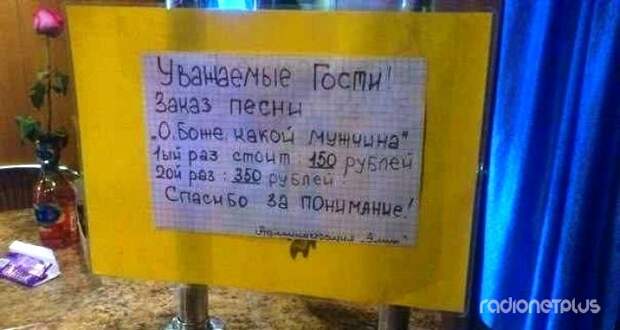 Уважаемые Гости!
Заказ песни
„О, Боже, какой мужчина"
1ый раз стоит: 150 рублей
2ой раз: 350 рублей.
Спасибо за понимание!
Администрация
radionetplus